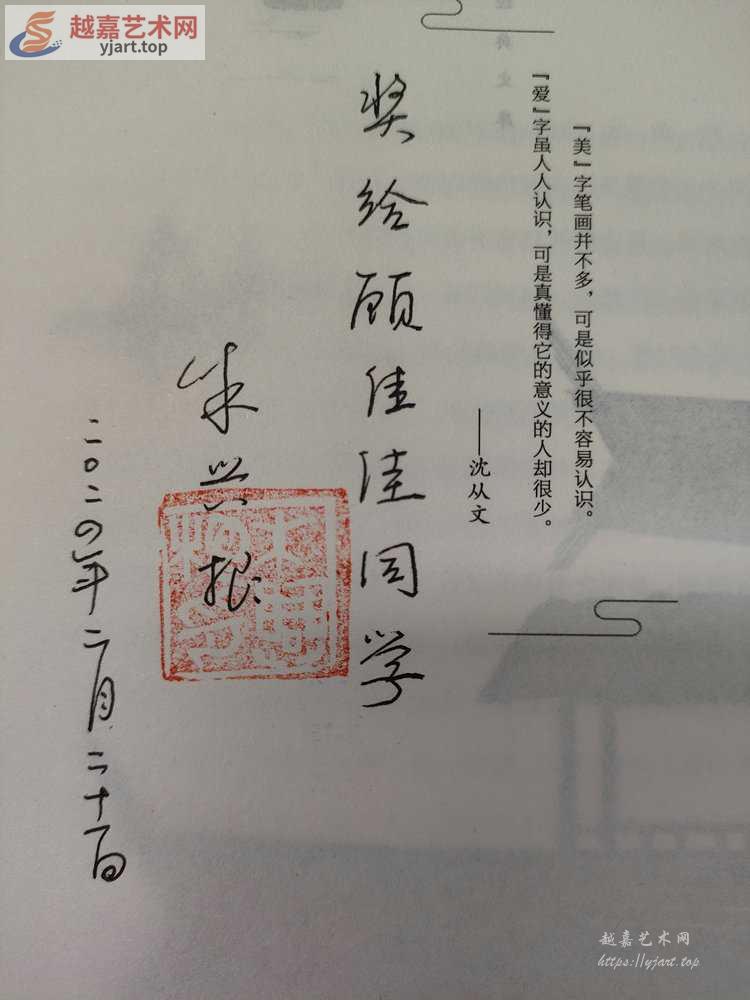 越嘉艺术网
yjart.top
『美』字笔画并不多，可是似乎很不容易认识。
『爱』字虽人人认识，可是真懂得它的意义的人却很少。
——沈从文
奖给顾佳佳同学
朱兴根
二〇二四年二月二十日
越嘉艺术网
https://yjart.top